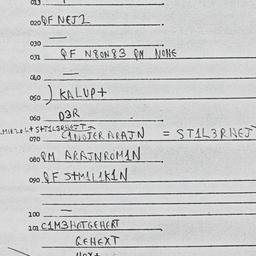 013
020 QF NEJ2
030 —
031 QF N80N83 QM NONE
040 —
050 ) KALUP+
060 D3R
070 C1NOTER ARAJN = ST1L3RNEJT
080 QM ARAJNROM1N
090 QF S+M1L1K1N
100 —
101 C1M3HOTGEHERT
GEHEXT